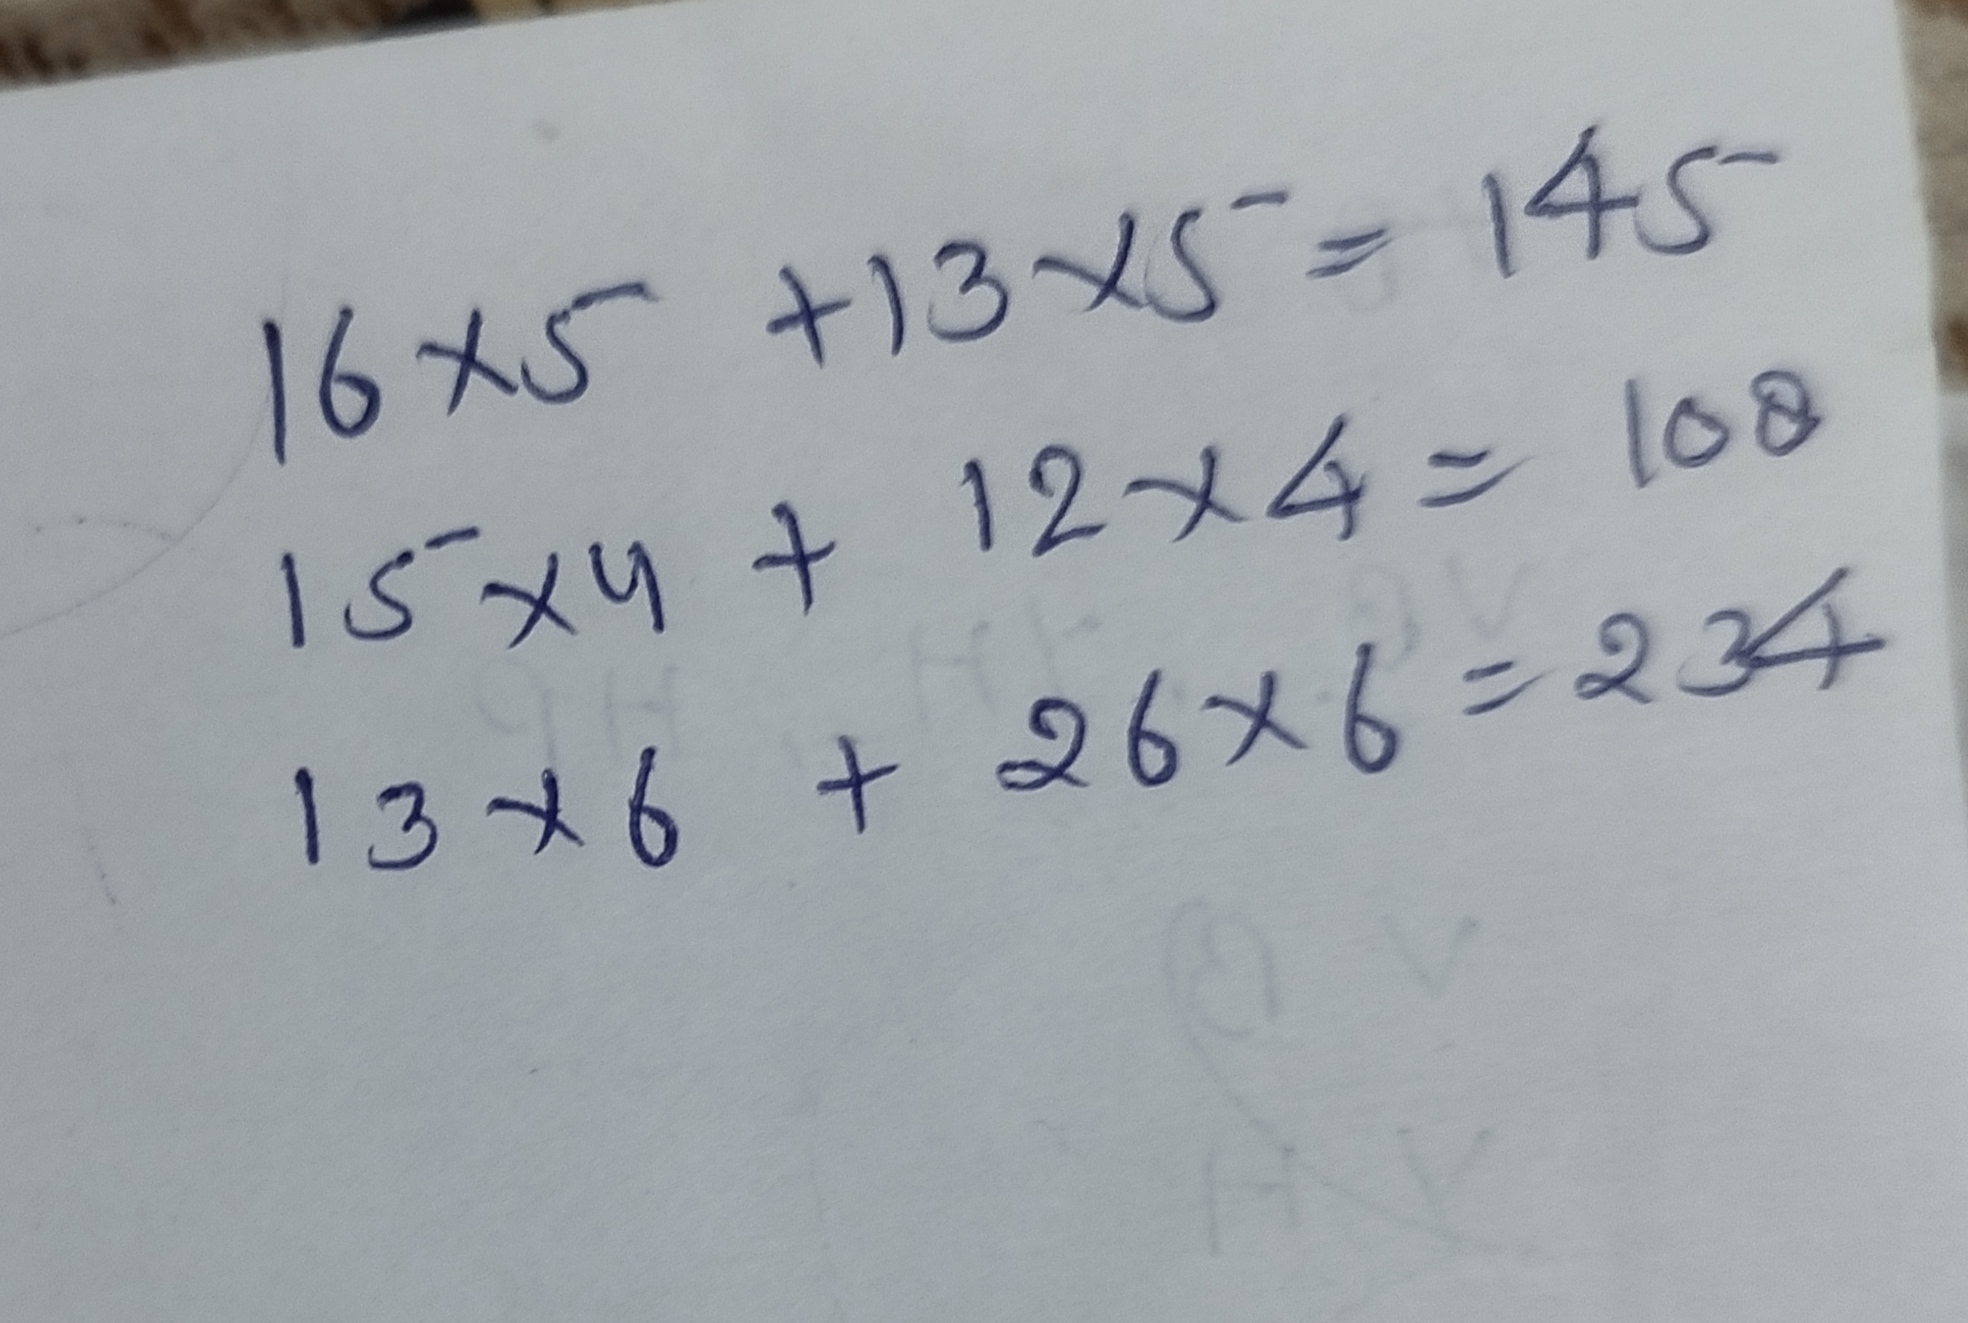 16×5 +13×5 = 145
15×4 + 12×4 = 108
13×6 + 26×6 = 234